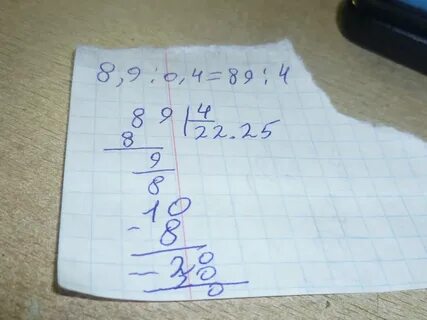 8,9 : 0,4 = 89 : 4
89 | 4
8 22.25
9
8
- 10
8
- 20
20
0